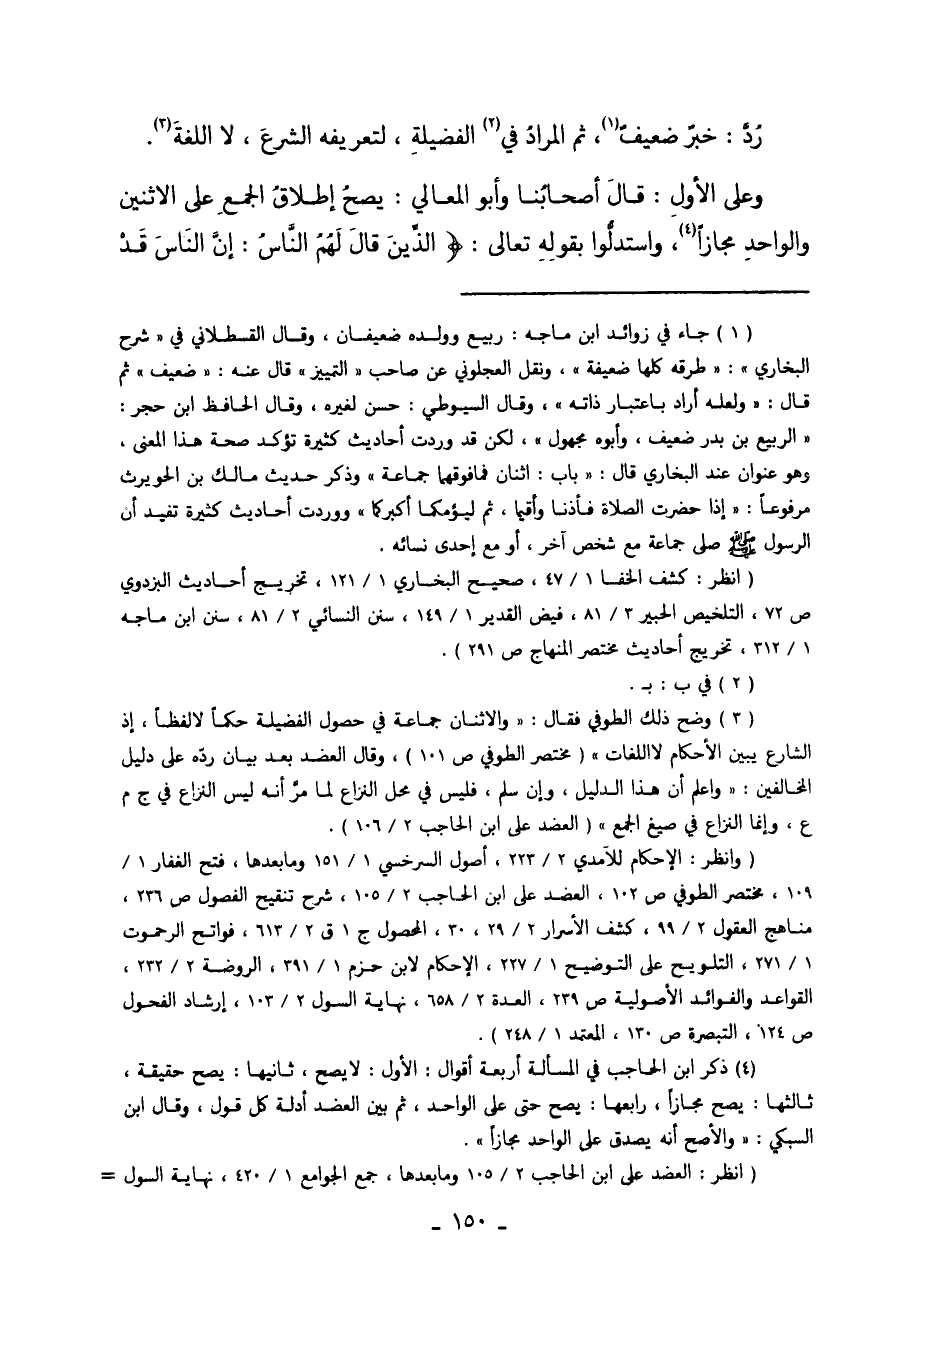 رُدَّ : خبرٌ ضعيفٌ(١)، ثم المرادُ في(٢) الفضيلةِ ، لتعريفه الشرعَ ، لا اللغةَ(٣).
وعلى الأولِ : قـالَ أصحـابُنـا وأبو المعـالي : يصحُ إطـلاقُ الجمعِ على الاثنين
والواحدِ مجازاً(٤)، واستدلُّوا بقولِهِ تعالى : ﴿ الذِّينَ قَالَ لَهُمُ النَّاسُ : إنَّ النَاسَ قَـدْ
( ١ ) جـاء في زوائـد ابن مـاجـه : ربيـع وولـده ضعيفـان ، وقـال القسطـلاني في « شرح
البخاري » : « طرقه كلها ضعيفة » ، ونقل العجلوني عن صاحب « التمييز » قال عنـه : « ضعيف » ثم
قـال : « ولعلـه أراد بـاعتبـار ذاتـه » ، وقـال السيـوطي : حسن لغيره ، وقـال الحـافـظ ابن حجر :
« الربيع بن بدر ضعيف ، وأبوه مجهول » ، لكن قد وردت أحاديث كثيرة تؤكـد صحـة هـذا المعنى ،
وهو عنوان عند البخاري قال : « باب : اثنان فمافوقها جمـاعـة » وذكر حـديث مـالـك بن الحويرث
مرفوعـاً : « إذا حضرت الصلاة فـأذنـا وأقيما ، ثم ليـؤمكمـا أكبركا » ووردت أحـاديث كثيرة تفيـد أن
الرسول ﷺ صلى جماعة مع شخص آخر ، أو مع إحدى نسائه .
( انظر : كشف الخفـا ١ / ٤٧ ، صحيـح البخـاري ١ / ١٢١ ، تخريـج أحـاديث البزدوي
ص ٧٢ ، التلخيص الحبير ٣ / ٨١ ، فيض القدير ١ / ١٤٩ ، سنن النسائي ٢ / ٨١ ، سنن ابن مـاجـه
١ / ٣١٢ ، تخريج أحاديث مختصر المنهاج ص ٢٩١ ) .
( ٢ ) في ب : بـ .
( ٣ ) وضح ذلك الطوفي فقـال : « والاثنـان جمـاعـة في حصول الفضيلـة حكمـاً لالفظـاً ، إذ
الشارع يبين الأحكام لااللغات » ( مختصر الطوفي ص ١٠١ ) ، وقال العضد بعـد بيـان ردّه على دليل
المخـالفين : « واعلم أن هـذا الـدليل ، وإن سلم ، فليس في محل النزاع لما مرَّ أنـه ليس النزاع في ج م
ع ، وإنما النزاع في صيغ الجمع » ( العضد على ابن الحاجب ٢ / ١٠٦ ) .
( وانظر : الإحكام للآمدي ٢ / ٢٢٣ ، أصول السرخسي ١ / ١٥١ ومابعدها ، فتح الغفار ١ /
١٠٩ ، مختصر الطوفي ص ١٠٢ ، العضـد على ابن الحـاجب ٢ / ١٠٥ ، شرح تنقيح الفصول ص ٢٣٦ ،
منـاهج العقول ٢ / ٩٩ ، كشف الأسرار ٢ / ٢٩ ، ٣٠ ، المحصول ج ١ ق ٢ / ٦١٣ ، فواتـح الرحموت
١ / ٢٧١ ، التلـويـح على التـوضيـح ١ / ٢٢٧ ، الإحكام لابن حـزم ١ / ٣٩١ ، الروضـة ٢ / ٢٣٢ ،
القواعـد والفـوائـد الأصـوليـة ص ٢٣٩ ، العـدة ٢ / ٦٥٨ ، نهـايـة السـول ٢ / ١٠٣ ، إرشـاد الفحـول
ص ١٢٤ ، التبصرة ص ١٣٠ ، المعتمد ١ / ٢٤٨ ) .
(٤) ذكر ابن الحـاجب في المسـألـة أربعـة أقوال : الأول : لايصح ، ثـانيهـا : يصح حقيقـة ،
ثـالثهـا : يصح مجـازاً ، رابعهـا : يصح حتى على الواحـد ، ثم بين العضـد أدلـة كل قـول ، وقـال ابن
السبكي : « والأصح أنه يصدق على الواحد مجازاً » .
( انظر : العضـد على ابن الحاجب ٢ / ١٠٥ ومابعدها ، جمع الجوامع ١ / ٤٢٠ ، نهـايـة السول =
- ١٥٠ -